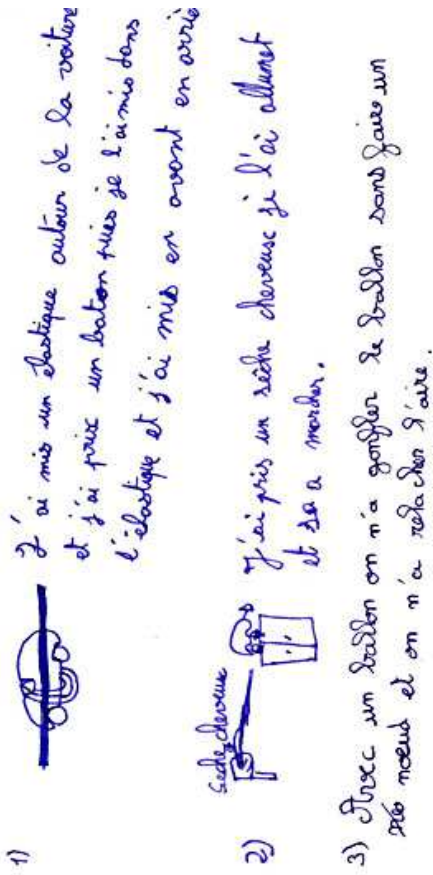 1) J'ai mis un elastique autour de la voiture
et j'ai prix un baton puies je l'ai mis dans
l'élastique et j'ai mis en avant en arriè
2) Seche cheveux
J'ai pris un sèche cheveux je l'ai allumet
et sa a marcher.
3) Avec un ballon on n'a gonfler le ballon sans faire un
noeud et on n'a relacher l'aire.